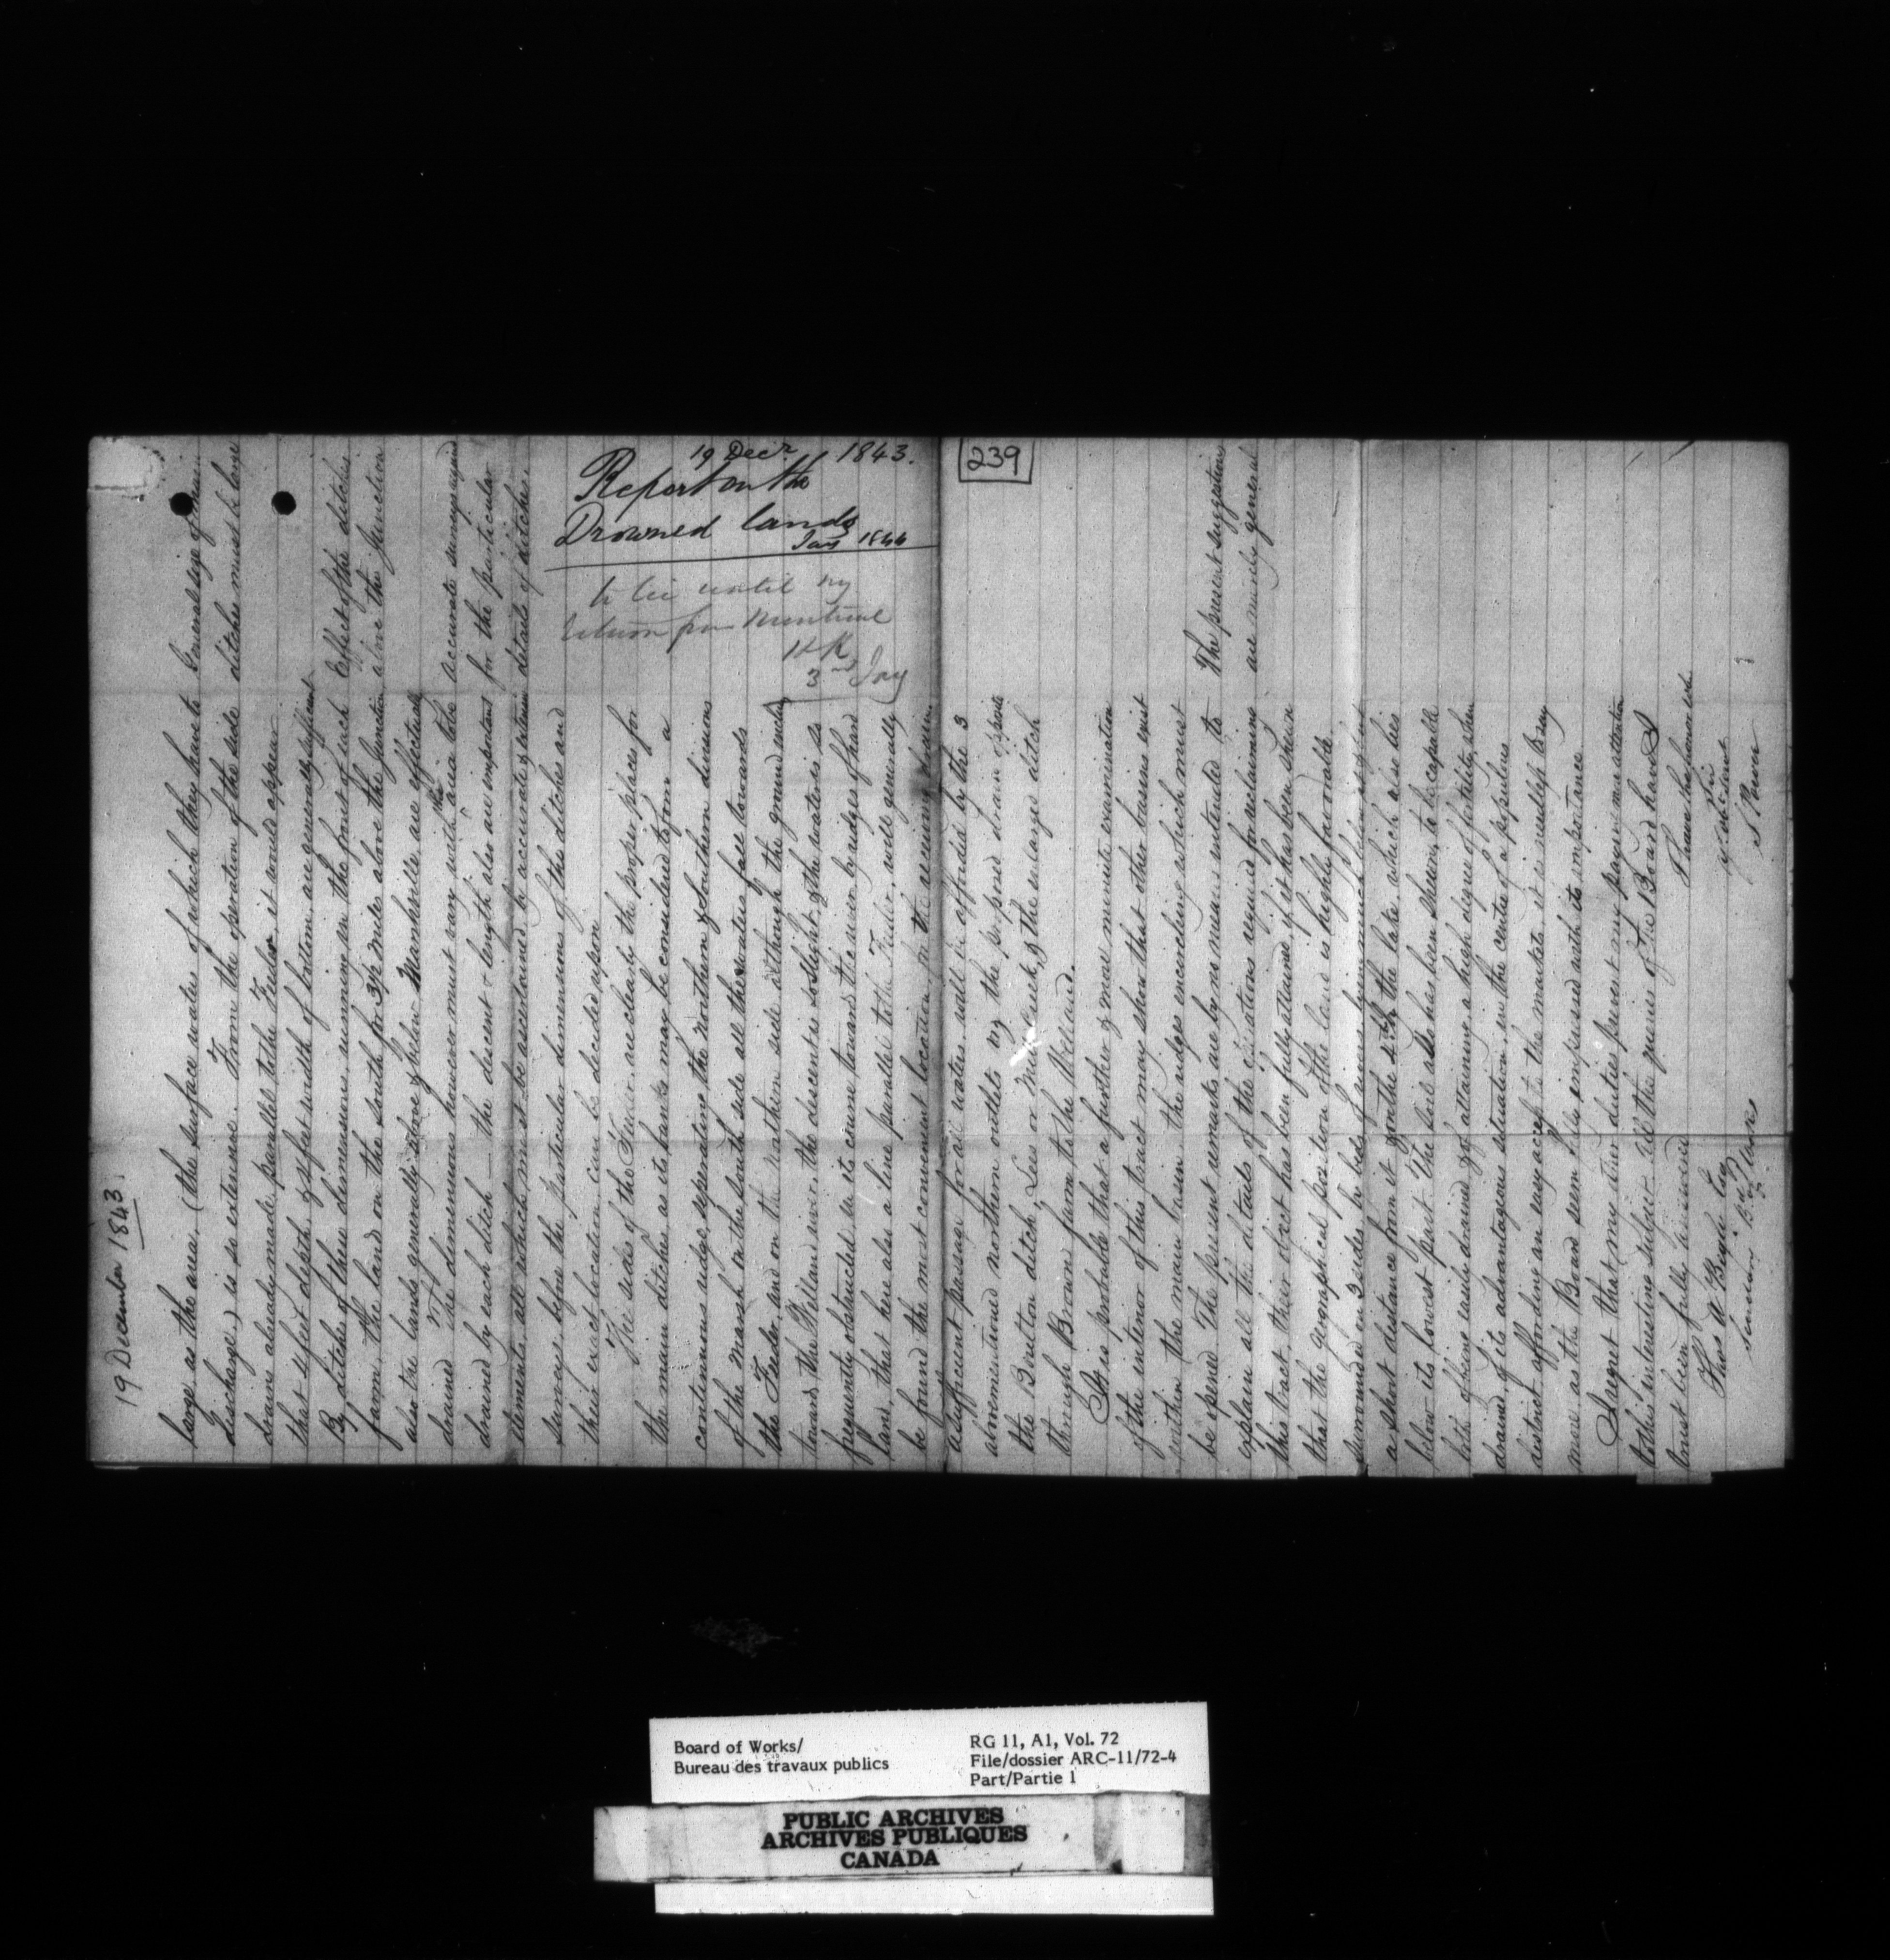 19 December 1843.
large as the area (the surface water of which they have to
discharge) is so extensive. From the operation of the side
drains already made parallel to the Feeder it would appear
that 4 feet depth & 5 feet width of bottom are generally sufficient
By ditches of these dimensions running in the front of each
farm, the land on the South for 3½ mile above the Junction
also the lands generally above & below Marshville are effectually
drained The dimensions however must vary with the area to be
drained by each ditch — the descent & length also are important
elements, all which must be ascertained by accurate
surveys, before the particular dimensions of the ditches and
their exact location can be decided upon
The sides of the Feeder are clearly the proper places for
the main ditches as its banks may be considered to form a
continuous ridge, seperating the Northern & Southern divisions
of the Marsh on the South side all the waters fall towards
the Feeder, and on the Northern side although the ground inclines
toward the Welland river, the descent is so slight, & the water is so
frequently obstructed in its course toward the river by ridges of hard
land, that here also a line parallel to the Feeder, will generally
be found the most convenient location for the
General size of main
ditches must be large
Effect of the ditches
above the Junction
accurate surveys required
for the particular
details of ditches.
19 Decr 1843.
Report on the
Drowned lands
Jany 1844
to lie until my
return from Montreal
HK
3rd Jany
239
a sufficient passage for all water, will be afforded by the 3
aforementioned northern outlets viz the proposed drain opposite
the Boulton ditch, Lees or Mill Creek, & the enlarged ditch
through Brown farm to the Welland.
It is probable that a further & more minute examination
of the interior of this tract may show that other basins exist
within the main basin the ridges encircling which must
be opened The present remarks are by no means intended to
explain all the details of the operations required for reclaiming
this tract, their object has been fully attained, if it has been shewn
that the geographical position of the land is highly favorable.
surrounded on 3 sides by beds of rivers lying much below it, & but
a short distance from it & on the 4th the lake which also lies
below its lowest part. The soil also has been shewn, to be capable
both of being easily drained, & of attaining a high degree of fertility, when
drained, & its advantageous situation, in the centre of a populous
district affording an easy access to the markets, it is needless to say
more as the Board seem fully impressed with its importance
I regret that my other duties prevent my paying more attention
to this interesting subject. All the queries of the Board have I
trust been fully answered
The present suggestions
are merely general
I have the honor to be
Sir
yr obt servt
S Power
Thos A Begly Esq
Secretary B. of Works
Board of Works/
Bureau des travaux publics
RG 11, A1, Vol. 72
File/dossier ARC-11/72-4
Part/Partie 1
PUBLIC ARCHIVES
ARCHIVES PUBLIQUES
CANADA